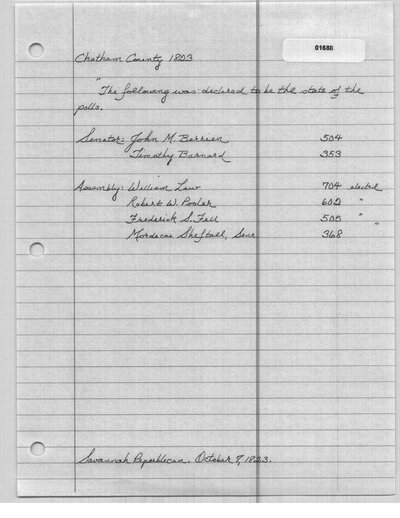 01688
Chatham County 1823
"The following was declared to be the state of the
polls.
Senator: John M. Berrien 504
Timothy Barnard 353
Assembly: William Law 704 elected
Robert W. Pooler 602 "
Frederick S. Fell 505 "
Mordecai Sheftall, Senr. 368 "
Savannah Republican. October 7, 1823.